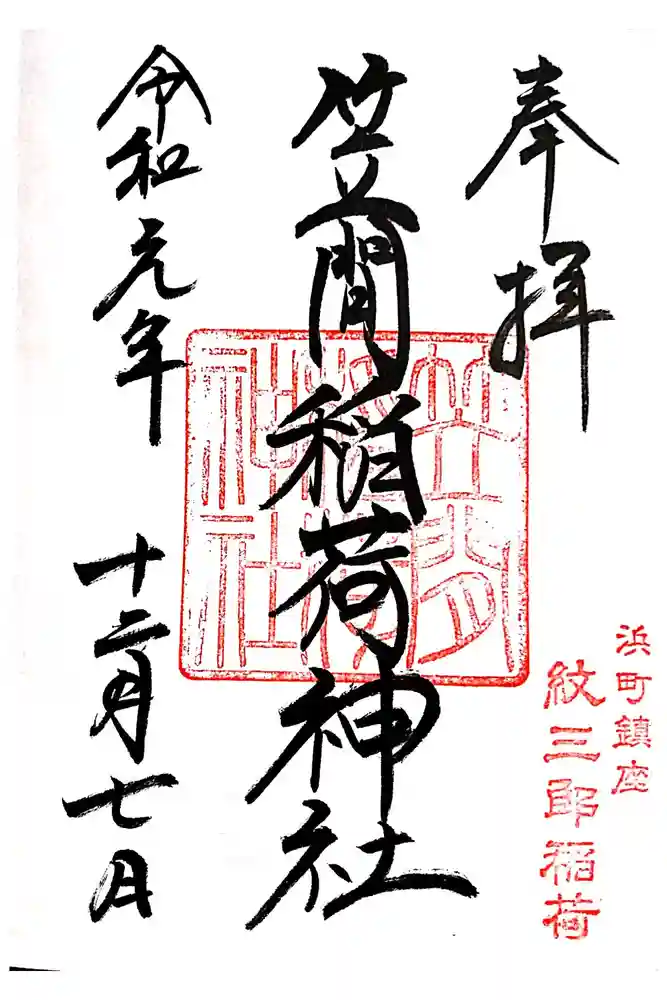 浜町鎮座
紋三郎稲荷
奉拝
笠間稲荷神社
笠間
稲荷
神社
令和元年
十二月七日